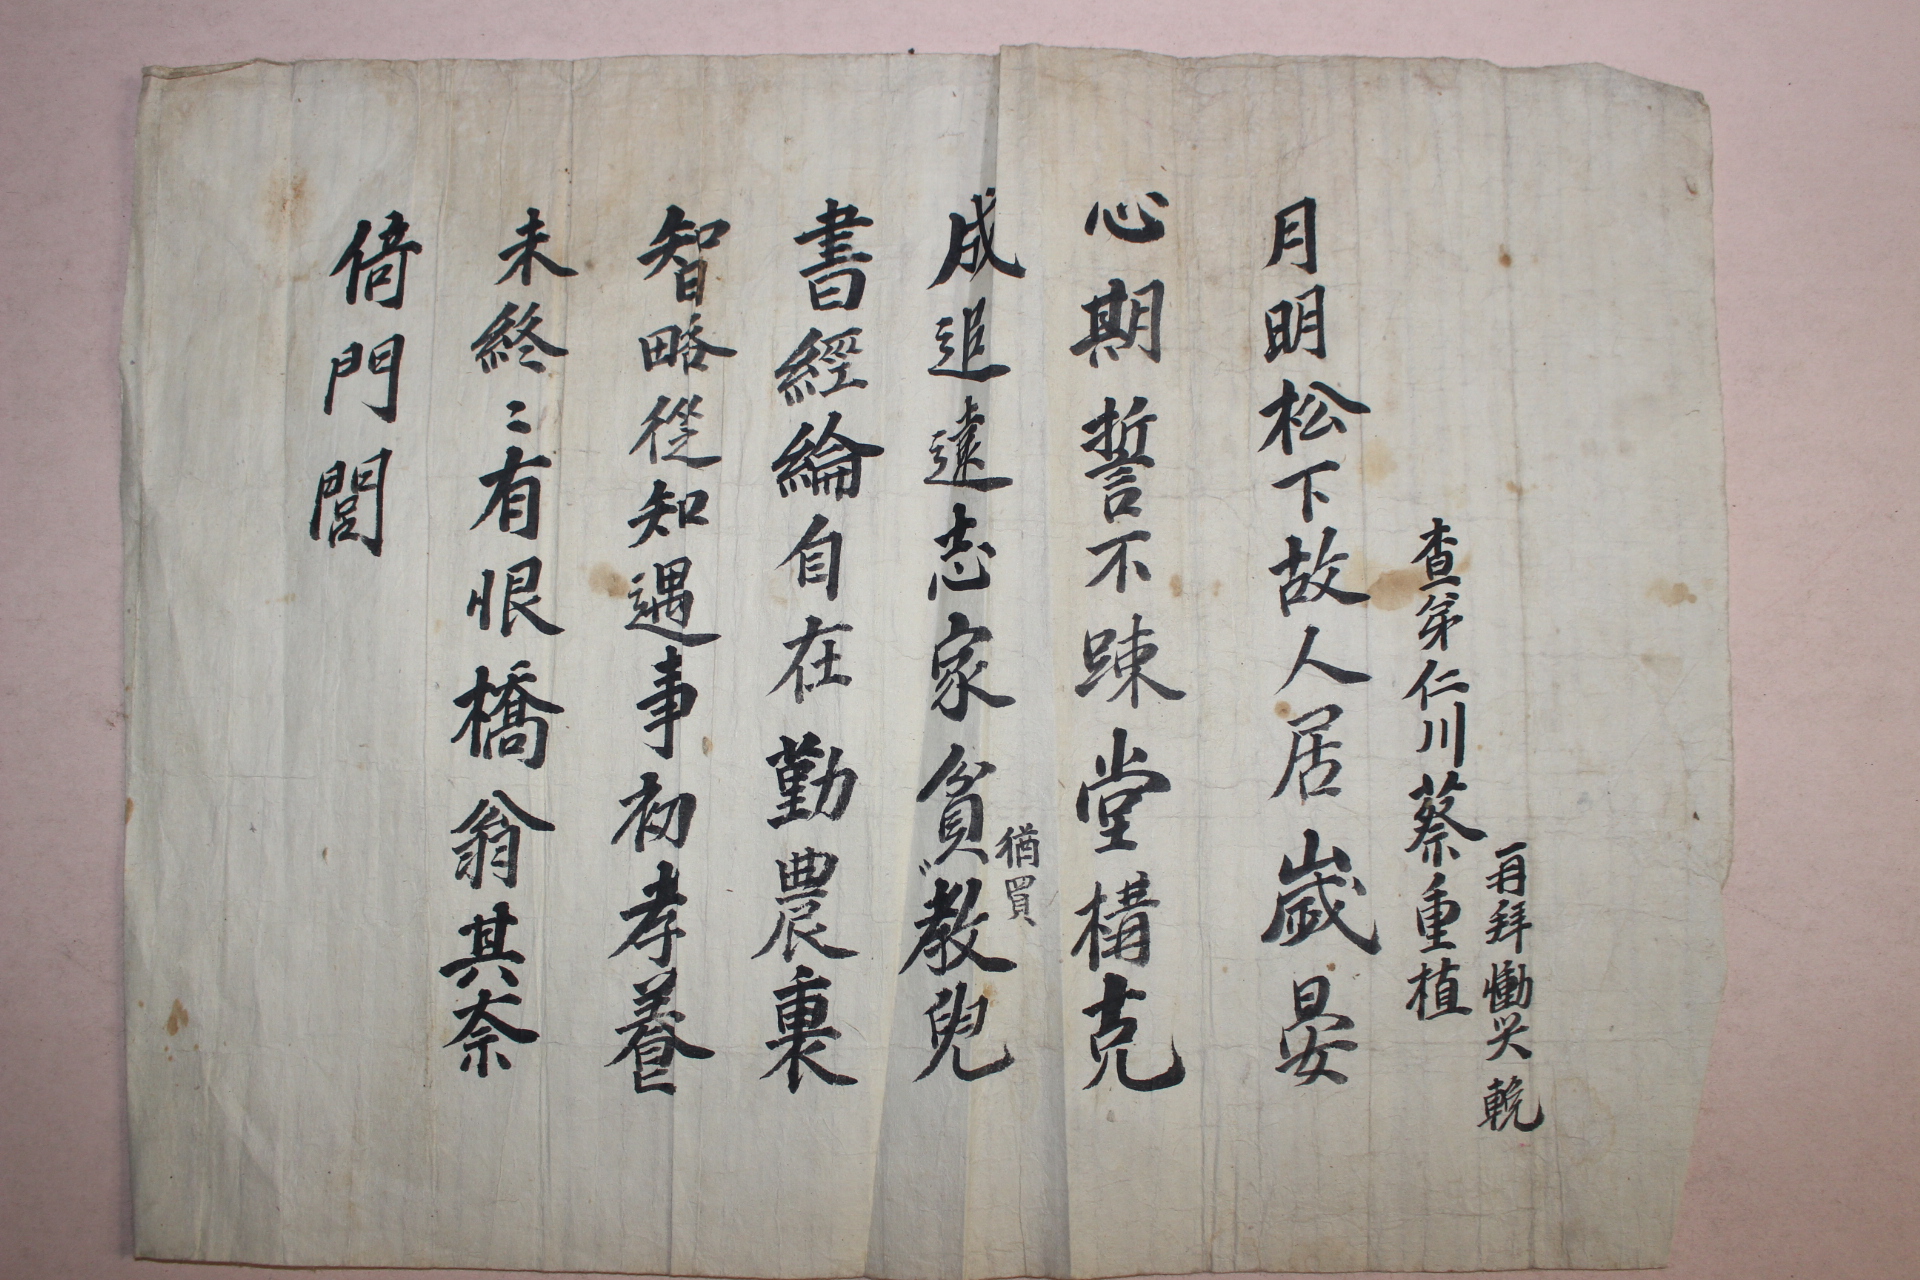 査弟仁川蔡重植
再拜慟哭輓
月明松下故人居歲晏
心期誓不踈堂構克
成追遠志家貧猶買教兒
書經綸自在勤農裏
智略從知遇事初孝養
未終〻有恨橋翁其奈
倚門閭